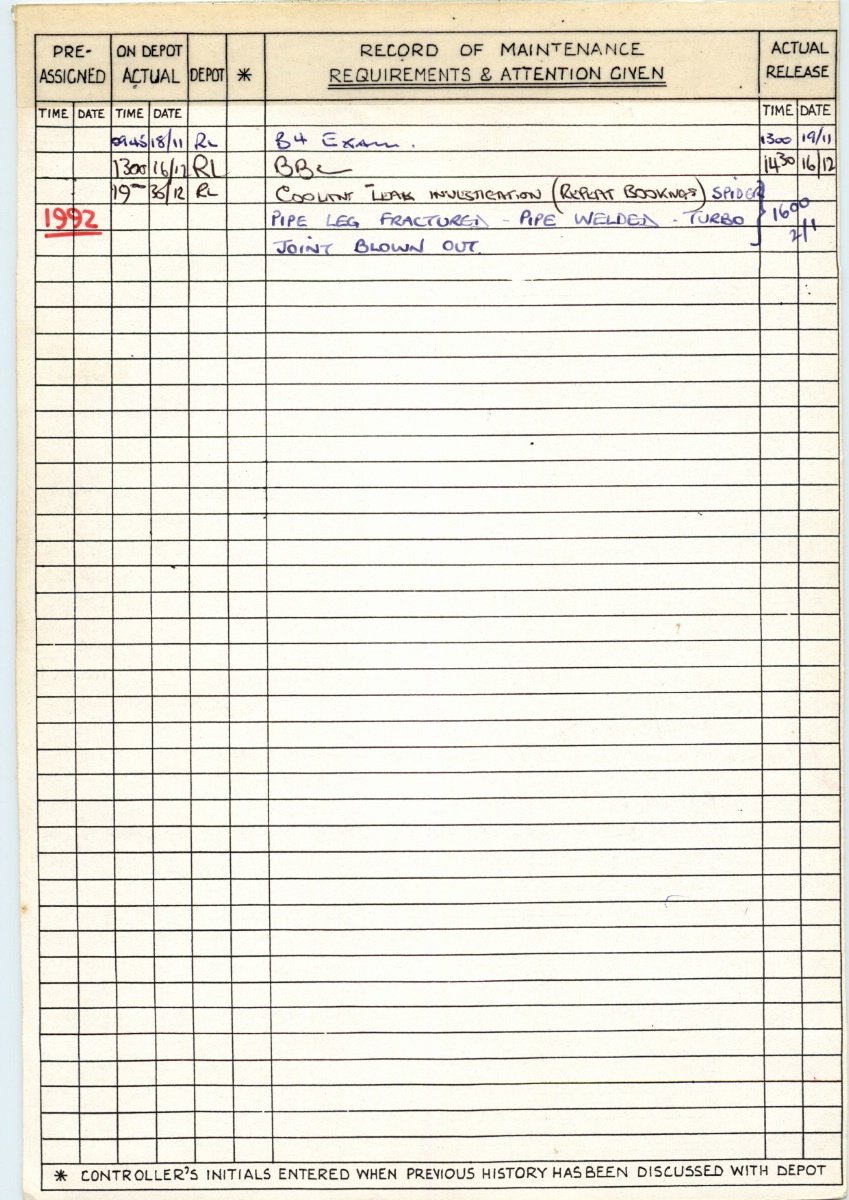 PRE-ASSIGNED ON DEPOT ACTUAL DEPOT * RECORD OF MAINTENANCE REQUIREMENTS & ATTENTION GIVEN ACTUAL RELEASE
TIME DATE TIME DATE TIME DATE
0945 18/11 RL B4 EXAM. 1300 19/11
1300 16/12 RL 1430 16/12
19— 30/12 RL COOLTNT LEAK INVESTIGATION (REPEAT BOOKINGS) SPIDER
1992 PIPE LEG FRACTURED - PIPE WELDED - TURBO 1600
JOINT BLOWN OUT. 2/1
* CONTROLLER'S INITIALS ENTERED WHEN PREVIOUS HISTORY HAS BEEN DISCUSSED WITH DEPOT